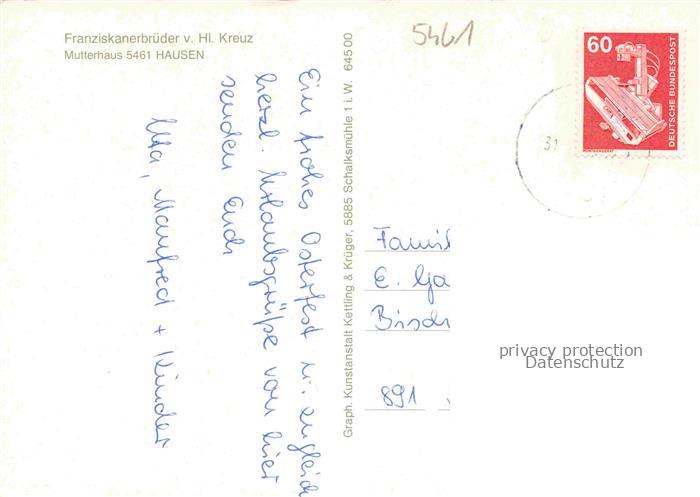 Franziskanerbrüder v. Hl. Kreuz
Mutterhaus 5461 HAUSEN
5461
60
DEUTSCHE BUNDESPOST
31
Ein frohes Osterfest u. zugleich
herzl. Urlaubsgrüße von hier
senden Euch
Uta, Manfred + Kinder
Graph. Kunstanstalt Kettling & Krüger, 5885 Schalksmühle 1 i. W. 645 00
Famil
E. Ga
Bisch
891
privacy protection
Datenschutz